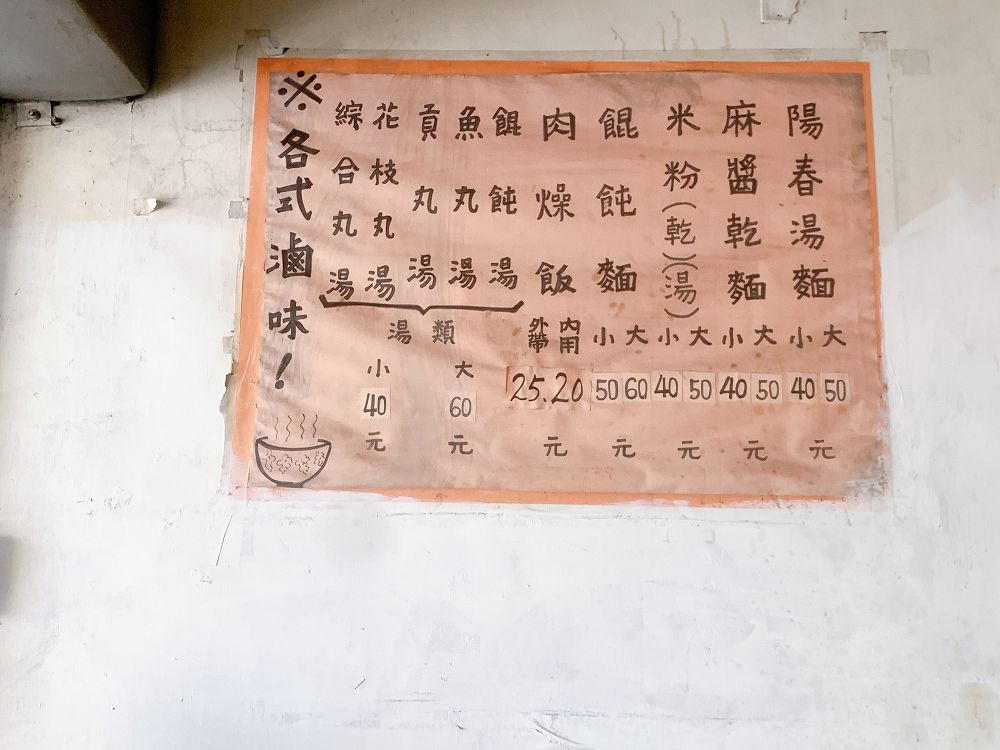 陽春湯麵
小 大
40 50
元
麻醬乾麵
小 大
40 50
元
米粉(乾)(湯)
小 大
40 50
元
餛飩麵
小 大
50 60
元
肉燥飯
外帶 內用
25.20
元
餛飩湯
魚丸湯
貢丸湯
花枝丸湯
綜合丸湯
湯類
小 大
40 60
元 元
※各式滷味!